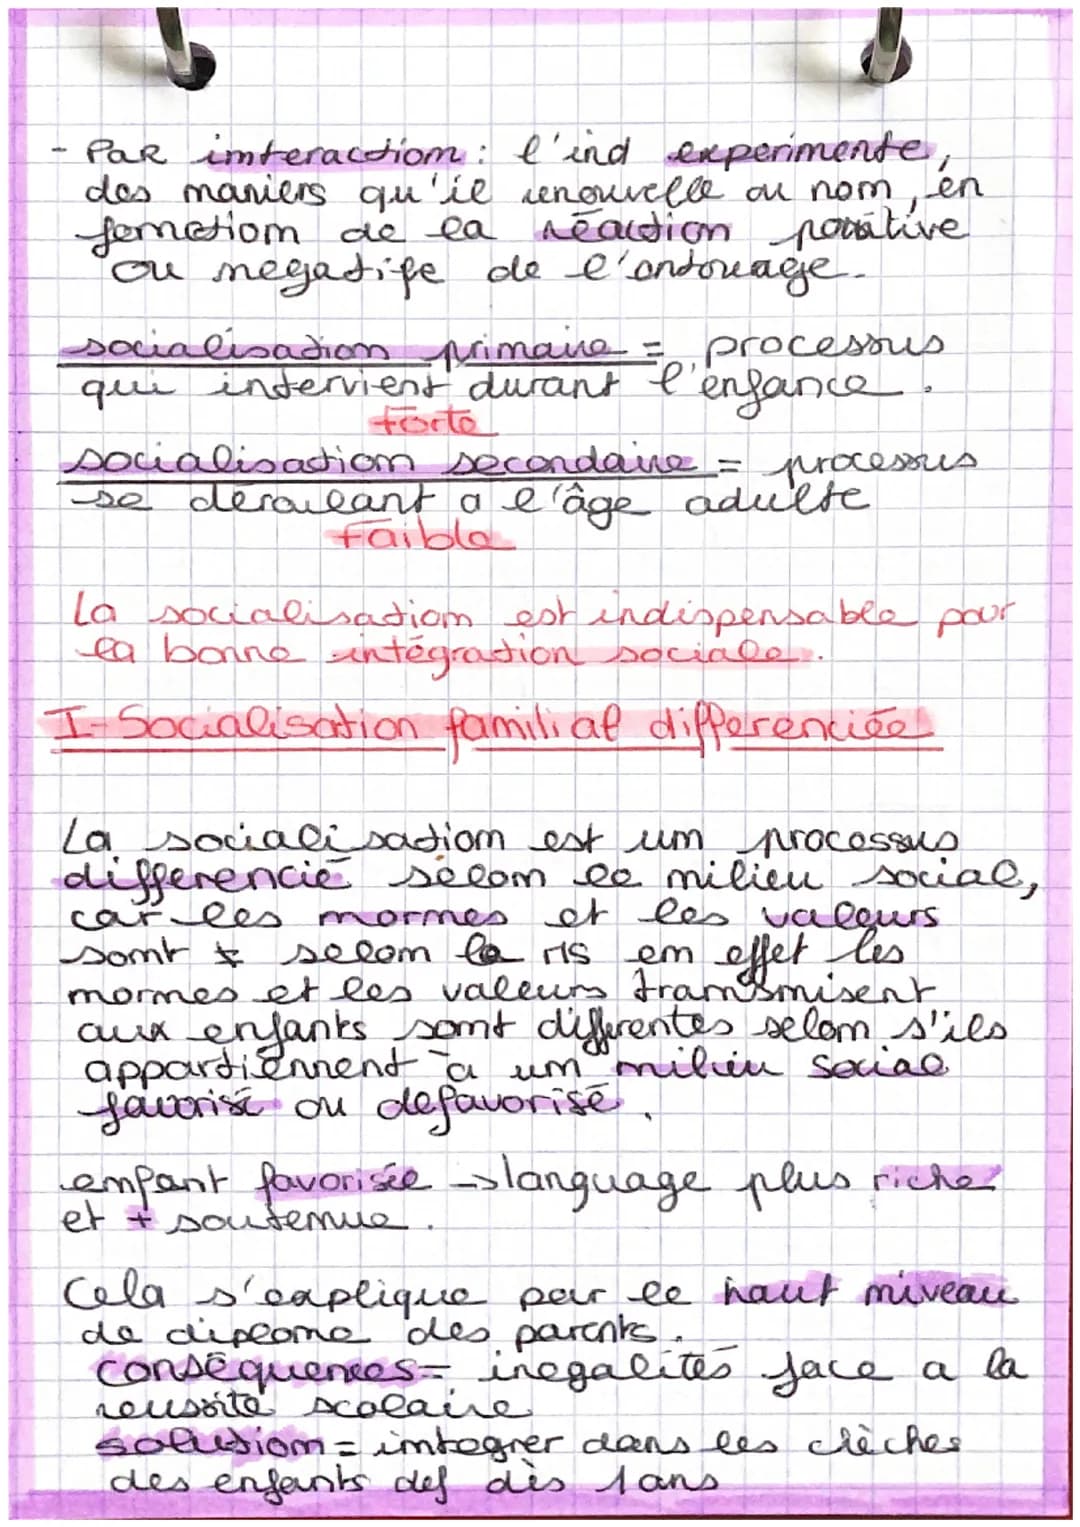 - Par interaction : l'ind experimente,
des maniers qu'il renouvelle ou non, en
fonction de la réaction positive
ou negatife de l'entourage.
socialisation primaire = processus
qui intervient durant l'enfance.
forte
socialisation secondaire = processus
se déraulant a l'âge adulte
Faible
La socialisation est indispensable pour
la bonne intégration sociale.
I-Socialisation familial differenciée
La socialisation est un processus
differencié selon le milieu social,
car les normes et les valeurs
sont ≠ selon le MS en effet les
normes et les valeurs transmisent
aux enfants sont differentes selon s'ils
appartiennent à un milieu social
favorisé ou defavorisé.
enfant favorisée → language plus riche
et + soutenue.
Cela s'explique par le haut niveau
de diplome des parents.
conséquences = inegalités face a la
reussite scolaire
solution = integrer dans les crèches
des enfants def dès 1 ans